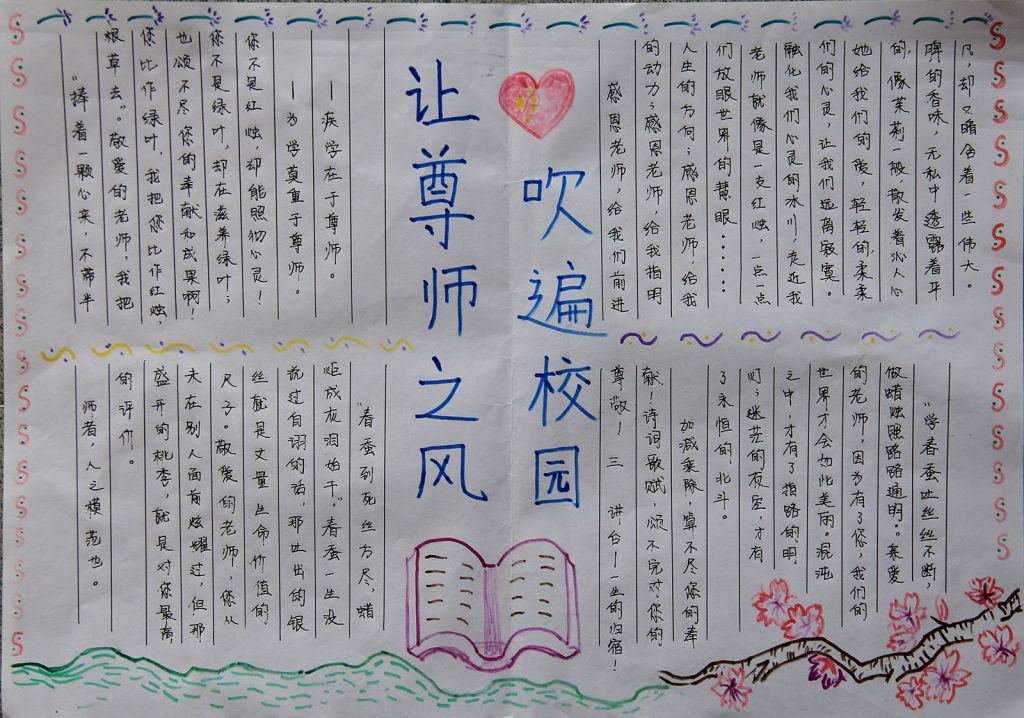 让尊师之风
吹遍校园
“捧着一颗心来,不带半
根草去。”敬爱的老师,我把
您比作绿叶,我把您比作红烛,
也颂不尽您的奉献和成果啊!
您不是绿叶,却在滋养绿叶;
您不是红烛,却能照彻心灵!
——为学莫重于尊师。
——疾学在于尊师。
感恩老师,给我们前进
的动力;感恩老师,给我指明
人生的方向;感恩老师,给我
们放眼世界的慧眼……
老师就像是一支红烛,一点一点
融化我们心灵的冰川,走近我
们的心灵,让我们远离寂寞。
她给我们的爱,轻轻的,柔柔
的,像茉莉一般散发着沁人心
脾的香味,无私中透露着平
凡,却又暗含着一些伟大。
“春蚕到死丝方尽,蜡
炬成灰泪始干。”春蚕一生没
说过自诩的话,那吐出的银
丝就是丈量生命价值的
尺子。敬爱的老师,您从
未在别人面前炫耀过,但那
盛开的桃李,就是对您最高
的评价。
师者,人之模范也。
“学春蚕吐丝丝丝不断,
做蜡烛照路路通明。亲爱
的老师,因为有了您,我们的
世界才会如此美丽。混沌
之中,才有了指路的明
灯;迷茫的夜空,才有
了永恒的北斗。
加减乘除 算不尽您的奉
献!诗词歌赋,颂不完对您的
尊敬! 三 讲台!一生的归宿!